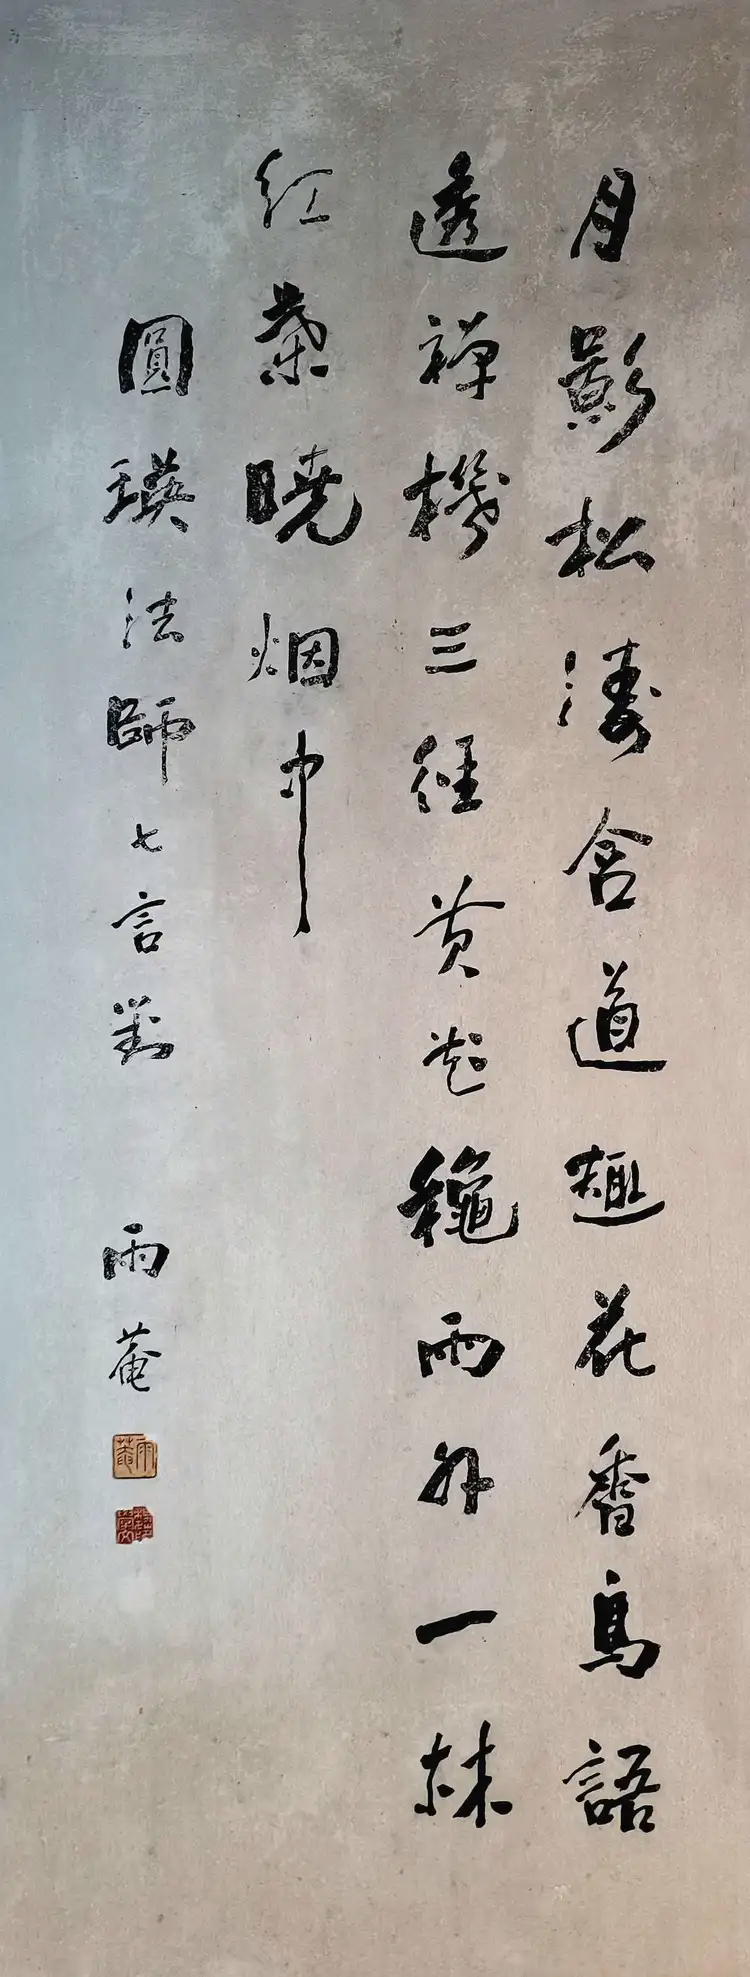 月影松濤含道趣花香鳥語
透禪機三徑黃花龝雨外一林
紅葉曉烟中
圓瑛法師七言對 雨菴